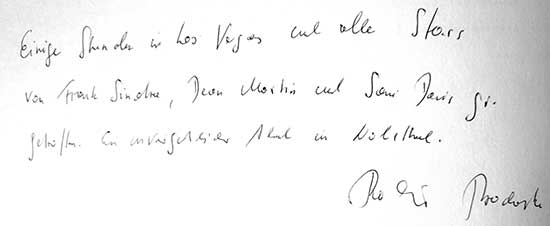 Einige Stunden in Las Vegas und alle Stars
von Frank Sinatra, Dean Martin und Sam Davis ge-
troffen. Ein unvergeßlicher Abend in